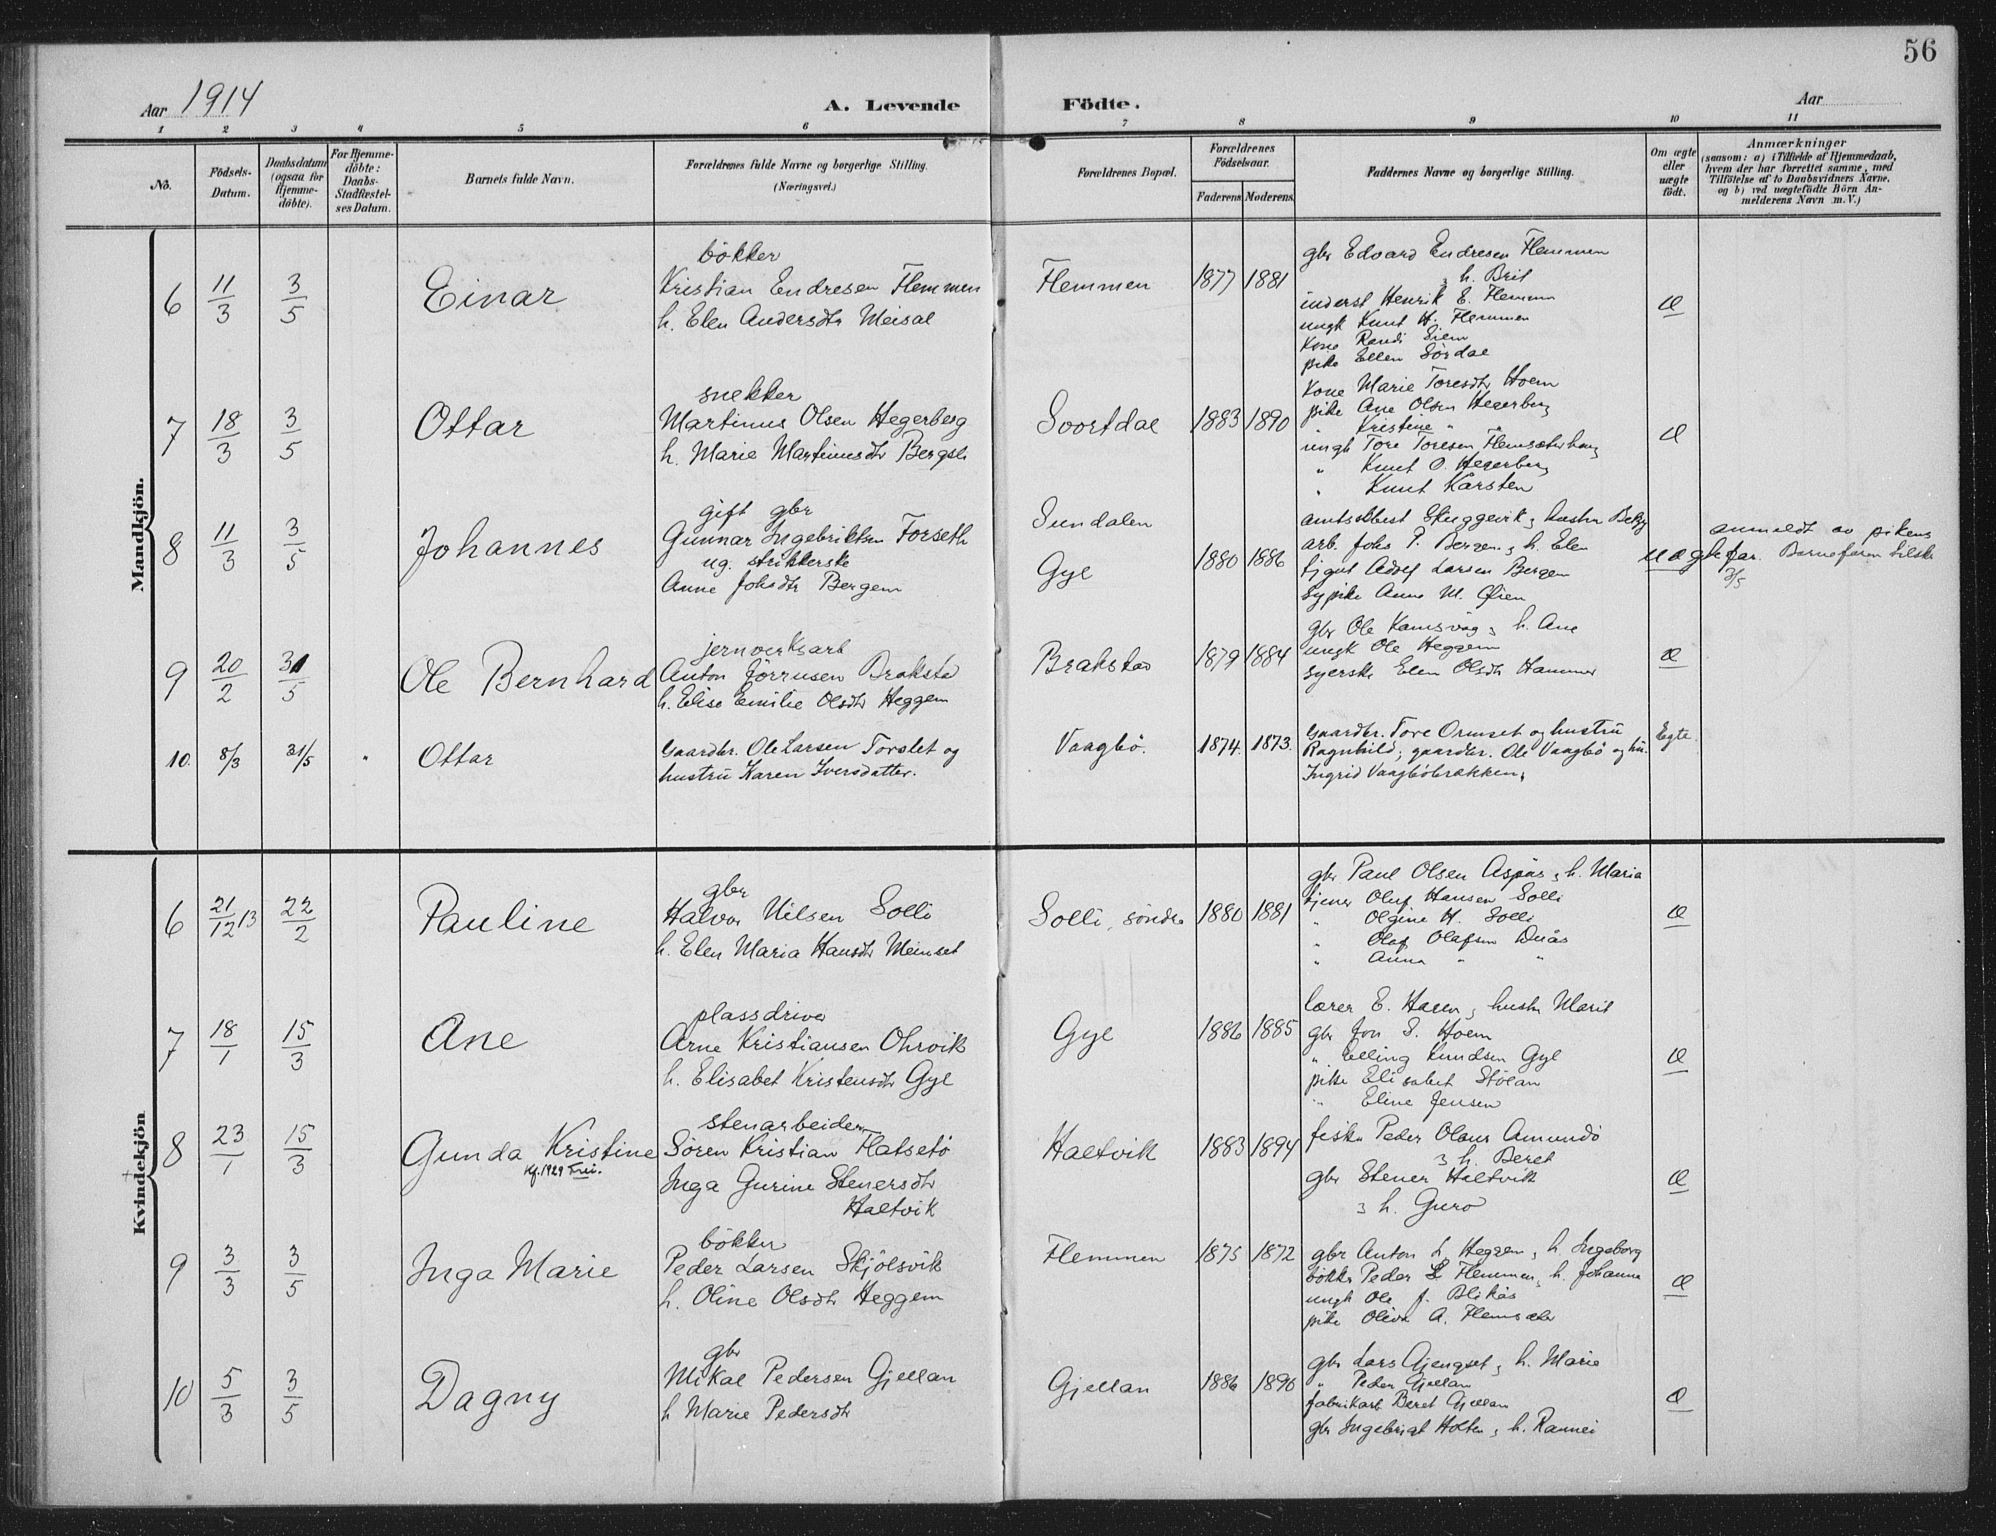 56
Aar 1914 A. Levende Födte. Aar
1 2 3 4 5 6 7 8 9 10 11
No.
Födsels-
Datum.
Daabsdatum
(ogsaa for
Hjemme-
döbte).
For Hjemme-
döbte:
Daabs-
Stadfæstel-
ses Datum.
Barnets fulde Navn.
Forældrenes fulde Navne og borgerlige Stilling.
(Næringsvei.)
Forældrenes Bopæl.
Forældrenes
Födselsaar.
Faderens Moderens
Faddernes Navne og borgerlige Stilling.
Om ægte
eller
uægte
födt.
Anmærkninger
(saasom: a) i Tilfælde af Hjemmedaab,
hvem der har forrettet samme, med
Tilföielse af to Daabsvidners Navne.
og b) ved uægtefödte Börn An-
melderens Navn m. V.)
Mandkjön.
6 11/3 3/5 Einar
bökker
Kristian Endresen Flemmen
h. Elen Andersdtr Meisal
Flemmen 1877 1881
gbr Edvard Endresen Flemmen
& h. Brit
inderst Henrik E. Flemmen
ungk Knut H. Flemmen
kone Randi Siem
pike Ellen Sördal
Æ
7 18/3 3/5 Ottar
snekker
Martinus Olsen Hegerberg
h. Marie Martinusdtr
Soortdal 1883 1890
kone Marie Toresdtr Hoem
pike Ane Olsen Hegerberg
" Kristine " "
ungk Tore Toresen
" Knut O. Hegerberg
" Knut Karsten
Æ
8 11/3 3/5 Johannes
gift gbr
Gunnar Ingebriktsen Forseth
ug. strikkerske
Anne Johsdtr Bergem
Sundalen
Gyl 1880 1886
Skuggevik & hustru
arb. Johs P. Bergem & h. Elen
Adolf Larsen Bergem
sypike Anne M. Öien
uægte
anmeldt av pikens
far. Barnefaren tilsk.
3/5
9 20/2 31/5 Ole Bernhard
jernverksarb
Anton Jörrusen Brakstad
h. Elise Emilie Olsdtr Heggem
Brakstad 1879 1884
gbr Ole Kamsvåg & h. Ane
ungk Ole Heggem
syersk Elen Olsdtr Hammer
Æ
10. 8/3 31/5 " Ottar
Gaardbr. Ole Larsen Torslet og
hustru Karen Iversdatter.
Vaagbö. 1874. 1873.
Gaardbr. Tore Ormset og hustru
Ragnhild; gaardbr. Ole Vaagbö og hu.
Ingrid Vaagböbrækken;
Egte.
Kvindekjön
6 21/12 13 22/2 Pauline
gbr
Halvor Nilsen Solli
h. Elen Maria Hansdtr Meinset
Solli, söndre 1880 1881
gbr Paul Olsen Aspås & h. Maria
tjener Oluf Hansen Solli
" Olgine H. Solli
" Olaf Olafsen
" Anna " "
Æ
7 18/1 15/3 Ane
plassdriver
Arne Kristiansen Ohrvik
h. Elisabet Kristensdtr Gyl
Gyl 1886 1885
lærer E. Haren & hustru Marit
gbr Jon S. Hoem
" Elling Knudsen Gyl
pike Elisabet Stölan
" Eline Jensen
Æ
8 23/1 15/3 Gunda Kristine
Kf. 1929 Frei.
stenarbeider
Sören Kristian Flatsetö
Inga Gurine Stenersdtr
Haltvik
Haltvik 1883 1894
fisker Peder Olaus Amundö
& h. Beret
gbr Stener Haltvik
& h. Guro
Æ
9 3/3 3/5 Inga Marie
bökker
Peder Larsen Skjölsvik
h. Oline Olsdtr Heggem
Flemmen 1875 1872
gbr Anton L. Heggem & h. Ingeborg
bökker Peder L Flemmen & h. Johanna
ungk Ole J. Blikås
pike Oliva A. Flemsæter
Æ
10 5/3 3/5 Dagny
gbr
Mikal Pedersen Gjellan
h Marie Pedersdtr
Gjellan 1886 1896
gbr Lars Gjengset & h. Marie
" Peder Gjellan
fabrikarb Beret Gjellan
gbr Ingebrigt Holten & h. Rannei
Æ